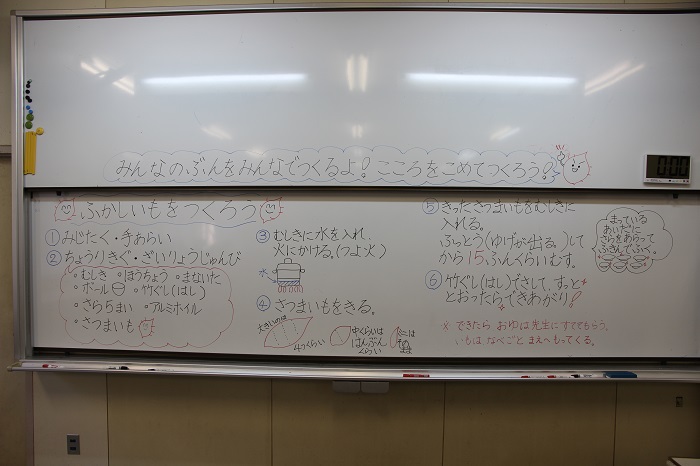 みんなのぶんをみんなでつくるよ! こころをこめてつくろう!
0:00
ふかしいもをつくろう
① みじたく・手あらい
② ちょうりきぐ・ざいりょうじゅんび
・むしき ・ほうちょう ・まないた
・ボール ・竹ぐし(はし)
・さら5まい ・アルミホイル
・さつまいも
③ むしきに水を入れ、
火にかける。(つよ火)
水
④ さつまいもをきる。
大きいのは
4つくらい
中くらいは
はんぶん
くらい
⑤ きったさつまいもをむしきに
入れる。
ふっとう(ゆげが出る。)して
から15ふんくらいむす。
まっている
あいだに
さらをあらって
ふきんでふく。
⑥ 竹ぐし(はし)でさして、すっと
とおったらできあがり!
※ できたら おゆは先生にすててもらう。
いもは なべごと まえへもってくる。